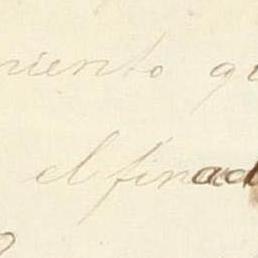 niento qu
el finad